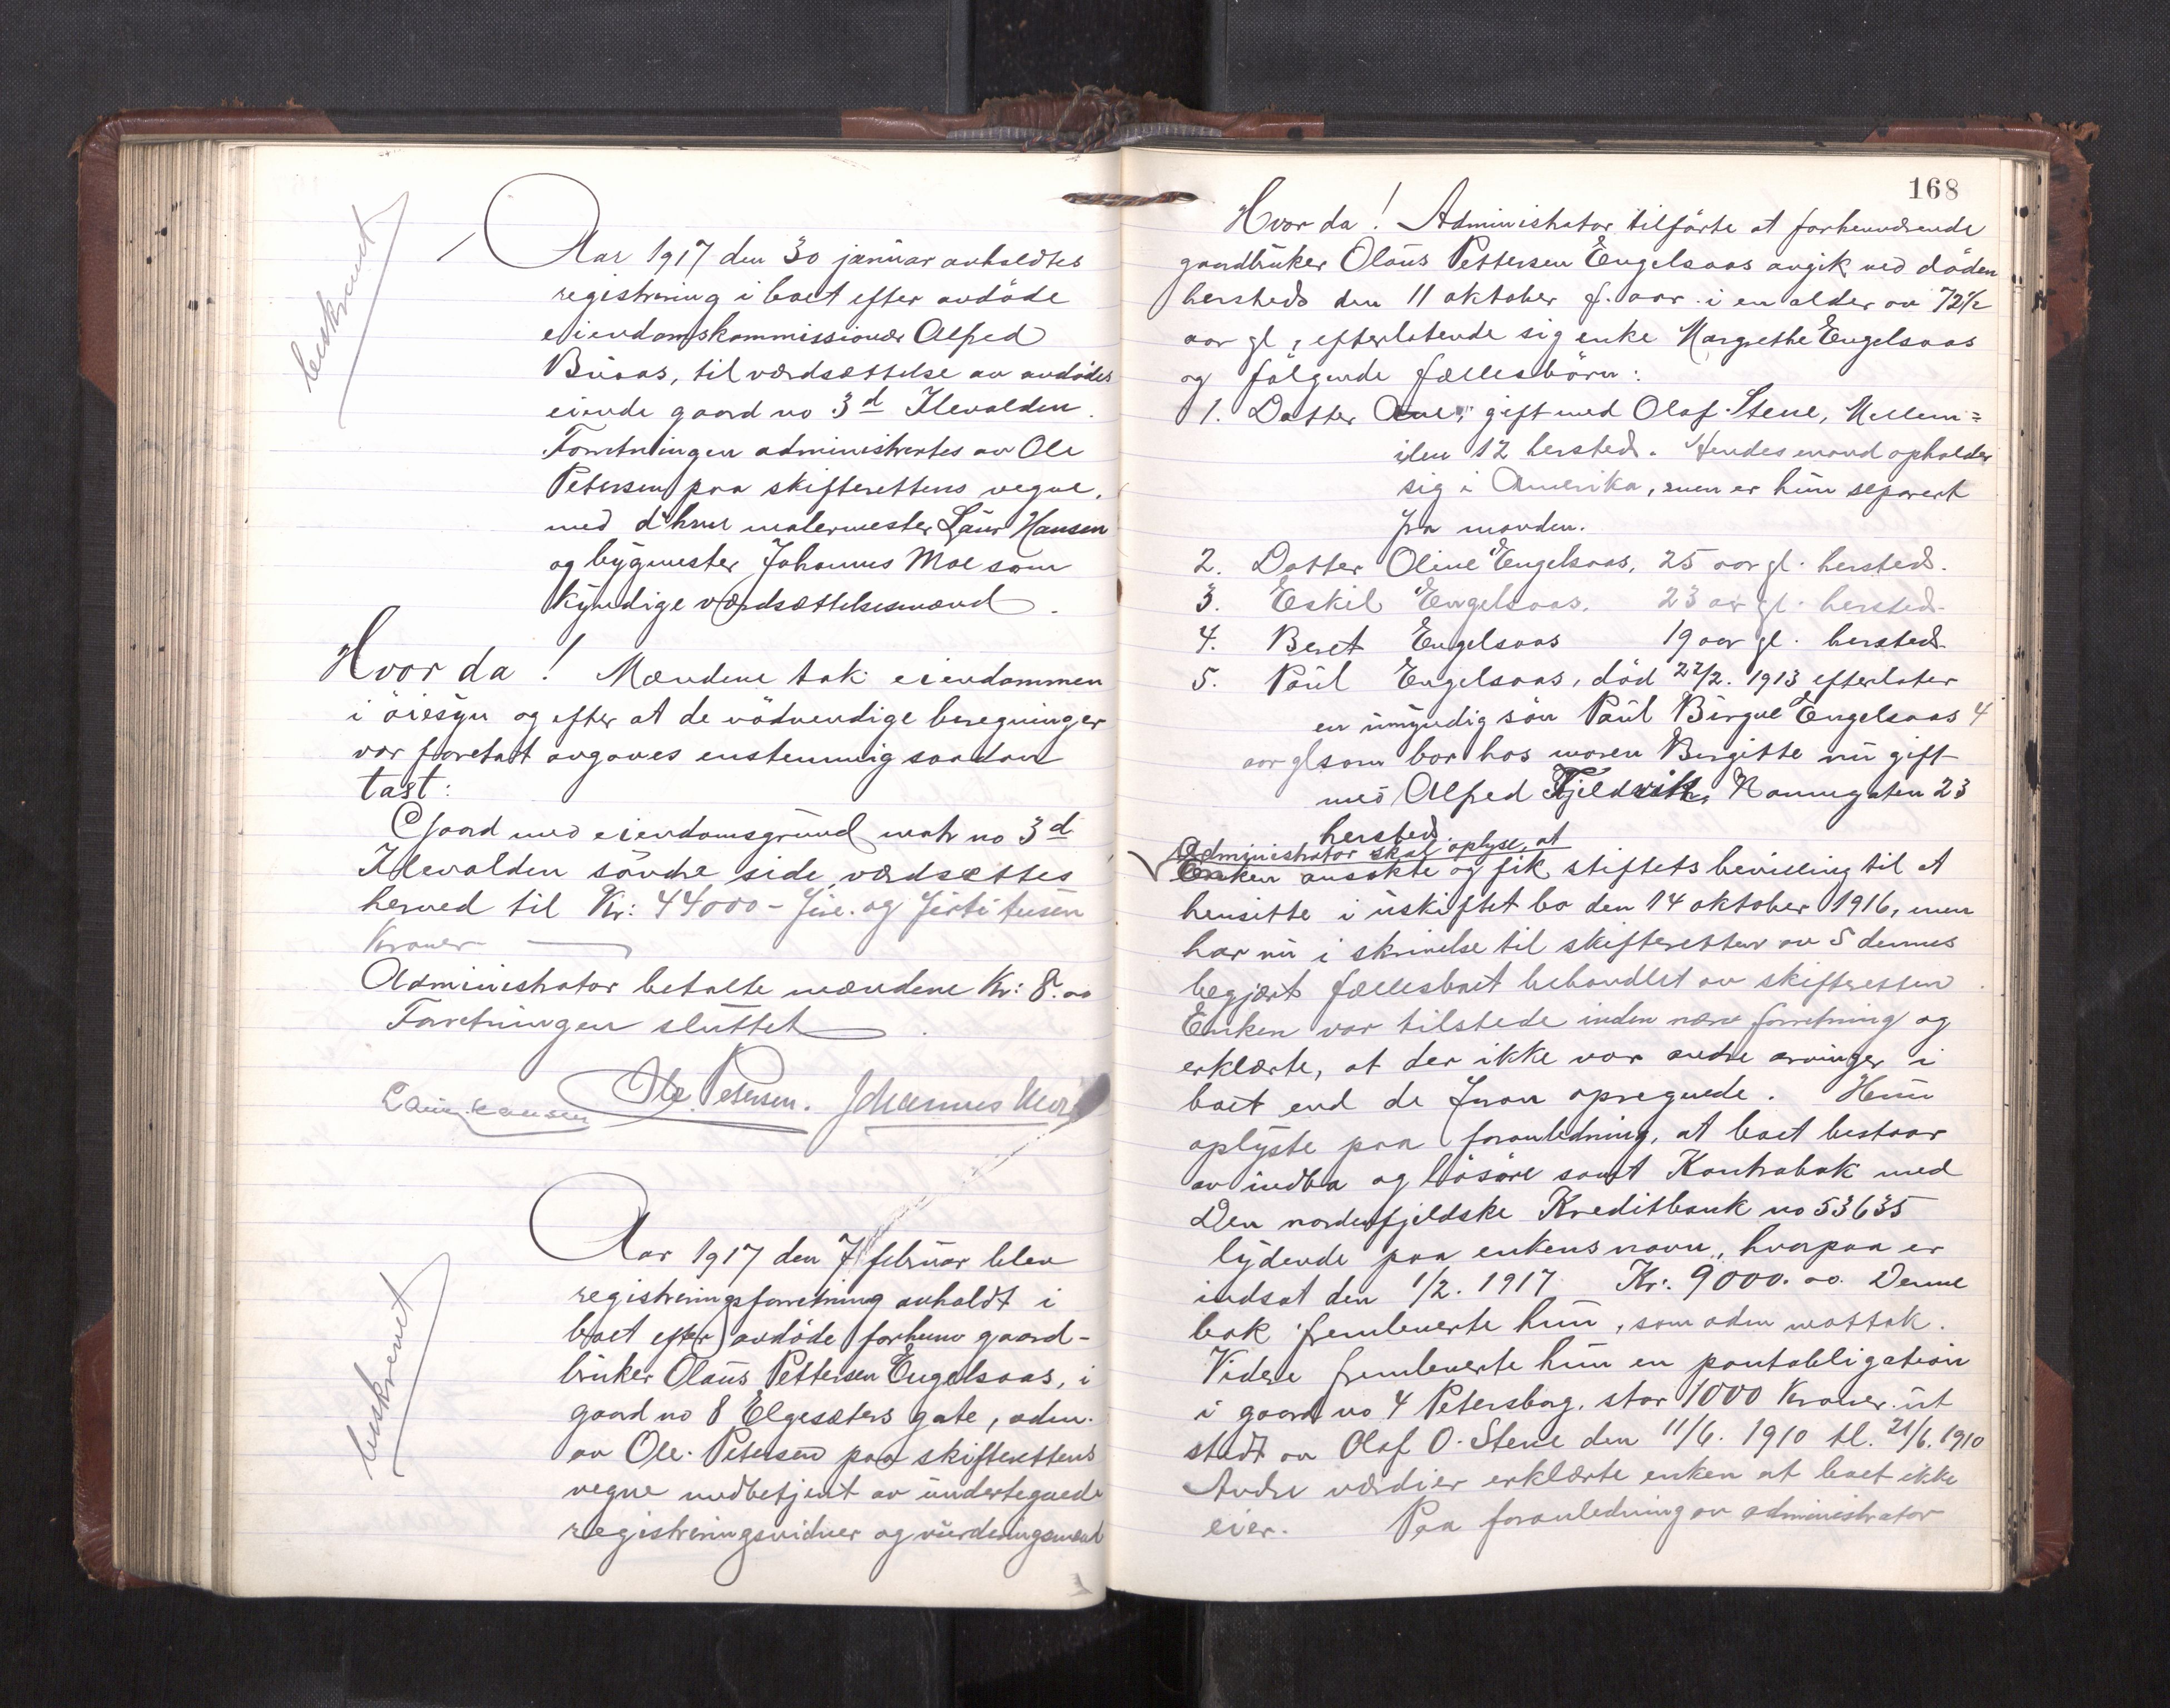 beskrevet
Aar 1917 den 30 januar avholdtes
registrering i boet efter avdöde
eiendomskommissionær Alfred
Buaas, til værdsættelse av avdödes
eiende gaard no 3d Ilevolden.
Forretningen administrertes av Ole
Petersen paa skifterettens vegne,
med d'hrr malermester Laur Hansen
og bygmester Johannes Moe som
kyndige værdsættelsesmænd.
Hvor da! Mændene tok eiendommen
i öiesyn og efter at de nödvendige beregninger
var foretat avgaves enstemmig saadan
tast:
Gaard med eiendomsgrund matr no 3d
Ilevolden söndre side værdsættes
herved til Kr: 44000 - fire og förti tusen
Kroner
Administrator betalte mændene Kr: 8.00
Forretningen sluttet.
Laur. Hansen Ole Petersen. Johannes Moe
beskrevet
Aar 1917 den 7 februar blev
registreringsforretning avholdt i
boet efter avdöde forhenv gaard-
bruker Olaus Pettersen Engelsaas, i
gaard no 8 Elgesæters gate, adm.
av Ole Petersen paa skifterettens
vegne medbetjent av undertegnede
registreringsvidner og vurderingsmænd
168
Hvor da! Administrator tilförte at forhenværende
gaardbruker Olaus Pettersen Engelsaas avgik ved döden
hersteds den 11 oktober f. aar i en alder av 72½
aar gl, efterlatende sig enke Margrethe Engelsaas
og fölgende fællesbörn:
1. Datter Ane, gift med Olaf Stene, Mellem=
ilen 12 hersteds. Hendes mand opholder
sig i Amerika, men er hun separert
fra manden.
2. Datter Oline Engelsaas, 25 aar gl. hersteds.
3. Eskil Engelsaas, 23 aar gl. hersteds.
4. Beret Engelsaas 19 aar gl. hersteds
5. Paul Engelsaas, död 22/2. 1913 efterlater
en umyndig sön Paul Birger Engelsaas 4
aar gl som bor hos moren Birgitte nu gift
med Alfred Fjeldvik, Nonnegaten 23
hersteds
Administrator skal oplyse, at
Enken ansökte og fik stiftets bevilling til at
hensitte i uskiftet bo den 14 oktober 1916, men
har nu i skrivelse til skifteretten av 5 dennes
begjært fællesboet behandlet av skifteretten.
Enken var tilstede inden nærv forretning og
erklærte, at der ikke var andre arvinger i
boet end de foran opregnede. Hun
oplyste paa foranledning, at boet bestaar
av indbo og lösöre samt Kontrabok med
Den nordenfjeldske Kreditbank no 53635
lydende paa enkens navn, hvorpaa er
indsat den 1/2. 1917 Kr: 9000.00. Denne
bok fremleverte hun, som adm mottok.
Videre fremleverte hun en pantobligation
i gaard no 4 Petersborg, stor 1000 Kroner ut
stedt av Olaf O. Stene den 11/6. 1910 tl. 21/6. 1910
Andre værdier erklærte enken at boet ikke
eier. Paa foranledning av administrator